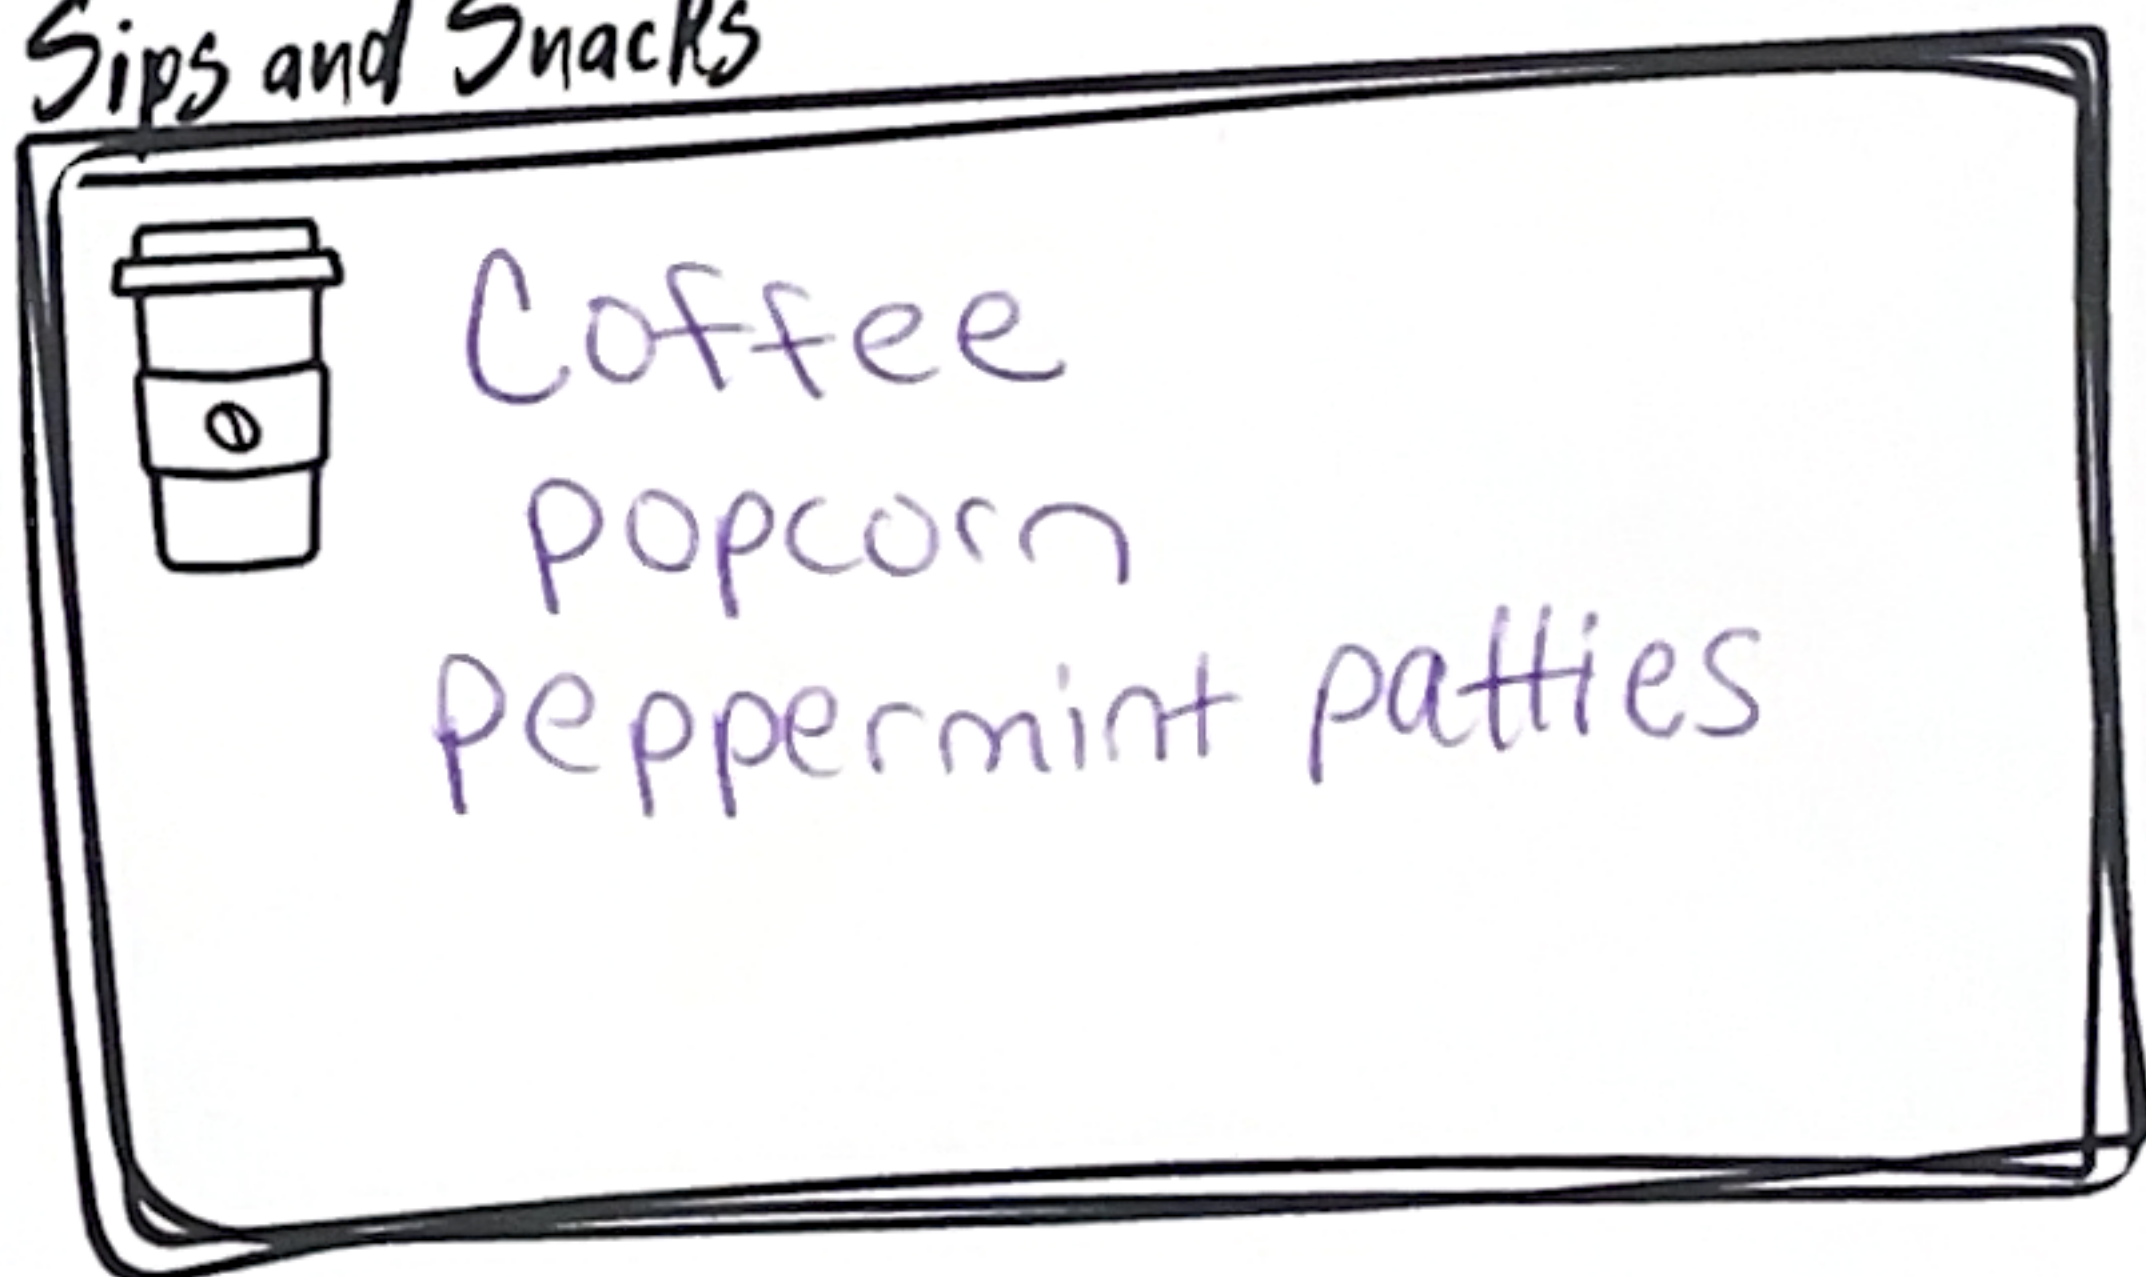 Sips and Snacks
Coffee
popcorn
peppermint patties